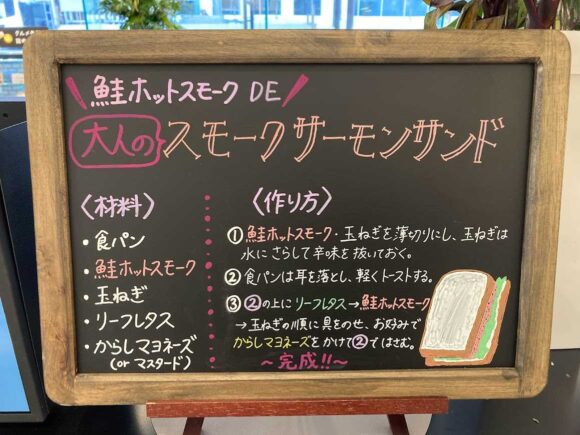 鮭ホットスモーク DE
大人の スモークサーモンサンド
〈材料〉
・食パン
・鮭ホットスモーク
・玉ねぎ
・リーフレタス
・からしマヨネーズ
(or マスタード)
〈作り方〉
① 鮭ホットスモーク・玉ねぎを薄切りにし、玉ねぎは
水にさらして辛味を抜いておく。
② 食パンは耳を落とし、軽くトーストする。
③ ②の上にリーフレタス→鮭ホットスモーク
→玉ねぎの順に具をのせ、お好みで
からしマヨネーズをかけて②ではさむ。
～完成!!～